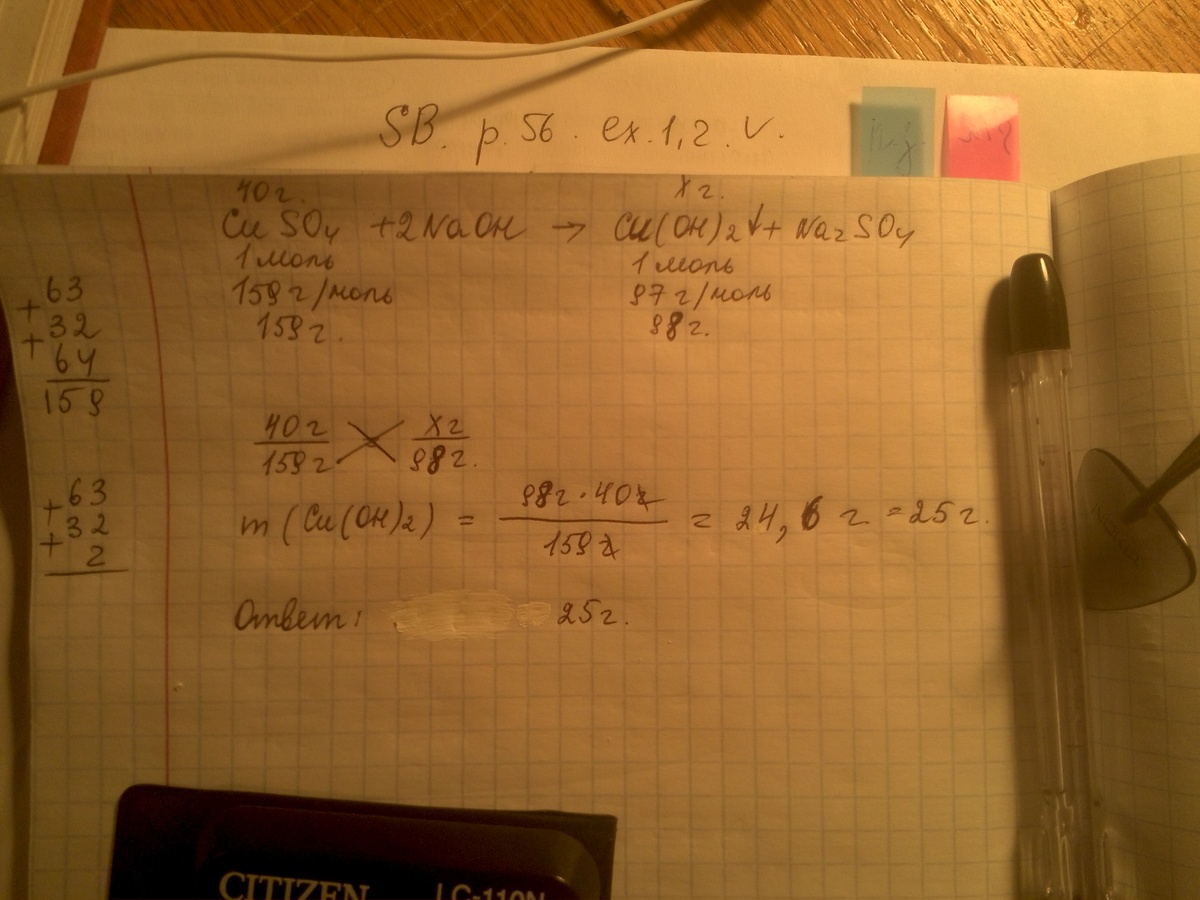 SB. p. 56. ex. 1, 2. v.
40 г. x г.
CuSO4 + 2NaOH → Cu(OH)2↓ + Na2SO4
1 моль 1 моль
159 г/моль 97 г/моль
159 г. 98 г.
63
+ 32
+ 64
159
40 г x г
159 г 98 г.
63
+ 32
+ 2
m (Cu(OH)2) = 98 г · 40 г / 159 г = 24,6 г = 25 г.
Ответ: 25 г.
CITIZEN LC-110N